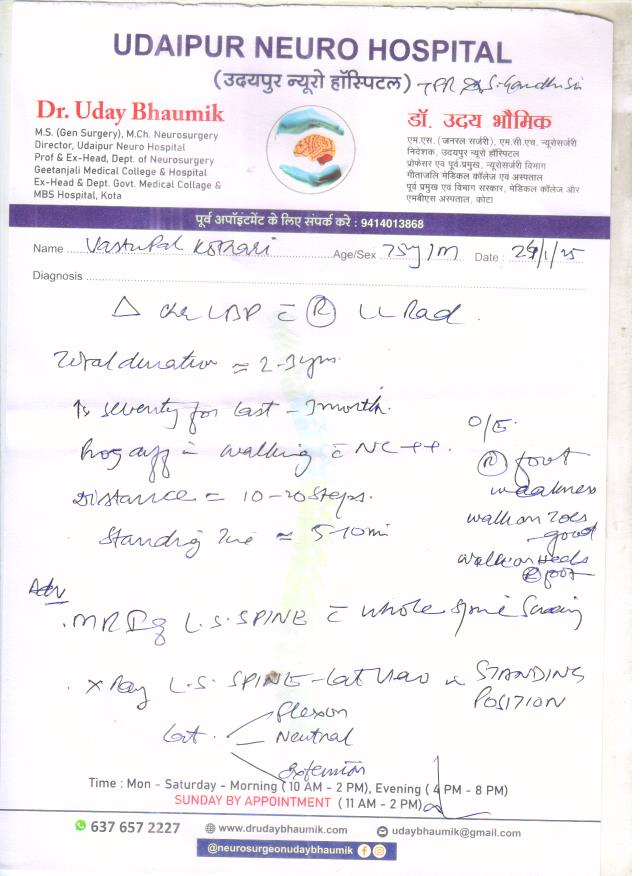 UDAIPUR NEURO HOSPITAL
(उदयपुर न्यूरो हॉस्पिटल)
Dr. Uday Bhaumik
M.S. (Gen Surgery), M.Ch. Neurosurgery
Director, Udaipur Neuro Hospital
Prof & Ex-Head, Dept. of Neurosurgery
Geetanjali Medical College & Hospital
Ex-Head & Dept. Govt. Medical Collage &
MBS Hospital, Kota
डॉ. उदय भौमिक
एम.एस. (जनरल सर्जरी), एम.सी.एच. न्यूरोसर्जरी
निदेशक, उदयपुर न्यूरो हॉस्पिटल
प्रोफेसर एवं पूर्व.प्रमुख, न्यूरोसर्जरी विभाग
गीतांजलि मेडिकल कॉलेज एवं अस्पताल
पूर्व प्रमुख एवं विभाग सरकार, मेडिकल कॉलेज और
एमबीएस अस्पताल, कोटा
पूर्व अपॉइंटमेंट के लिए संपर्क करे : 9414013868
Name Vastupal Kothari Age/Sex 75y/M Date : /1/25
Diagnosis
Δ LBP c̄ (R) LL Rad.
Total duration ≈ 2-3yrs.
↑s severity for last - month.
in walking c̄ NC ++.
Distance = 10-20 steps.
Standing Time ≈ 5-10mi
O/E.
(R) foot
weakness
walk on Toes
- good
walk on Heels
Adv
. MRI of L.S. SPINE c̄ whole spine Screening
. X Ray L.S. SPINE - Lat View in STANDING
POSITION
Lat. Flexion
Neutral
Extension
Time : Mon - Saturday - Morning ( 10 AM - 2 PM), Evening ( 4 PM - 8 PM)
SUNDAY BY APPOINTMENT (11 AM - 2 PM)
637 657 2227 www.drudaybhaumik.com udaybhaumik@gmail.com
@neurosurgeonudaybhaumik